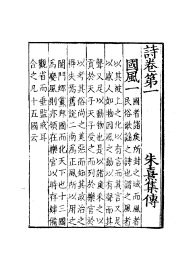 詩卷第一
朱熹集傳
國風一
國者諸侯所封之域而風者
民俗歌謠之詩也謂之風者
以其被上之化以有言而其言又足
以感人如物因風之動以有聲而其
聲又足以動物也是以諸侯采之以
貢於天子天子受之而列於樂官於
以考其俗尚之美惡而知其政治之
得失焉舊說二南為正風所以用之
閨門鄉黨邦國而化天下也十三國
為變風則亦領在樂官以時存肄備
觀省而垂監戒耳
合之凡十五國云